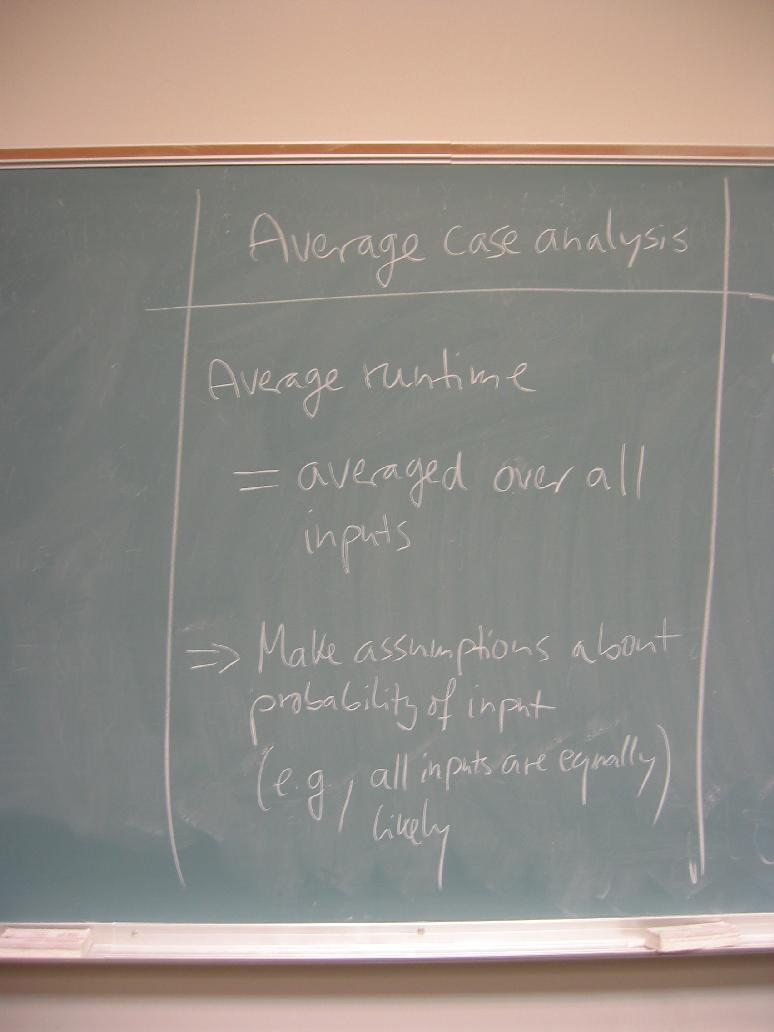 Average case analysis
Average runtime
= averaged over all
inputs
⇒ Make assumptions about
probability of input
(e.g., all inputs are equally)
likely